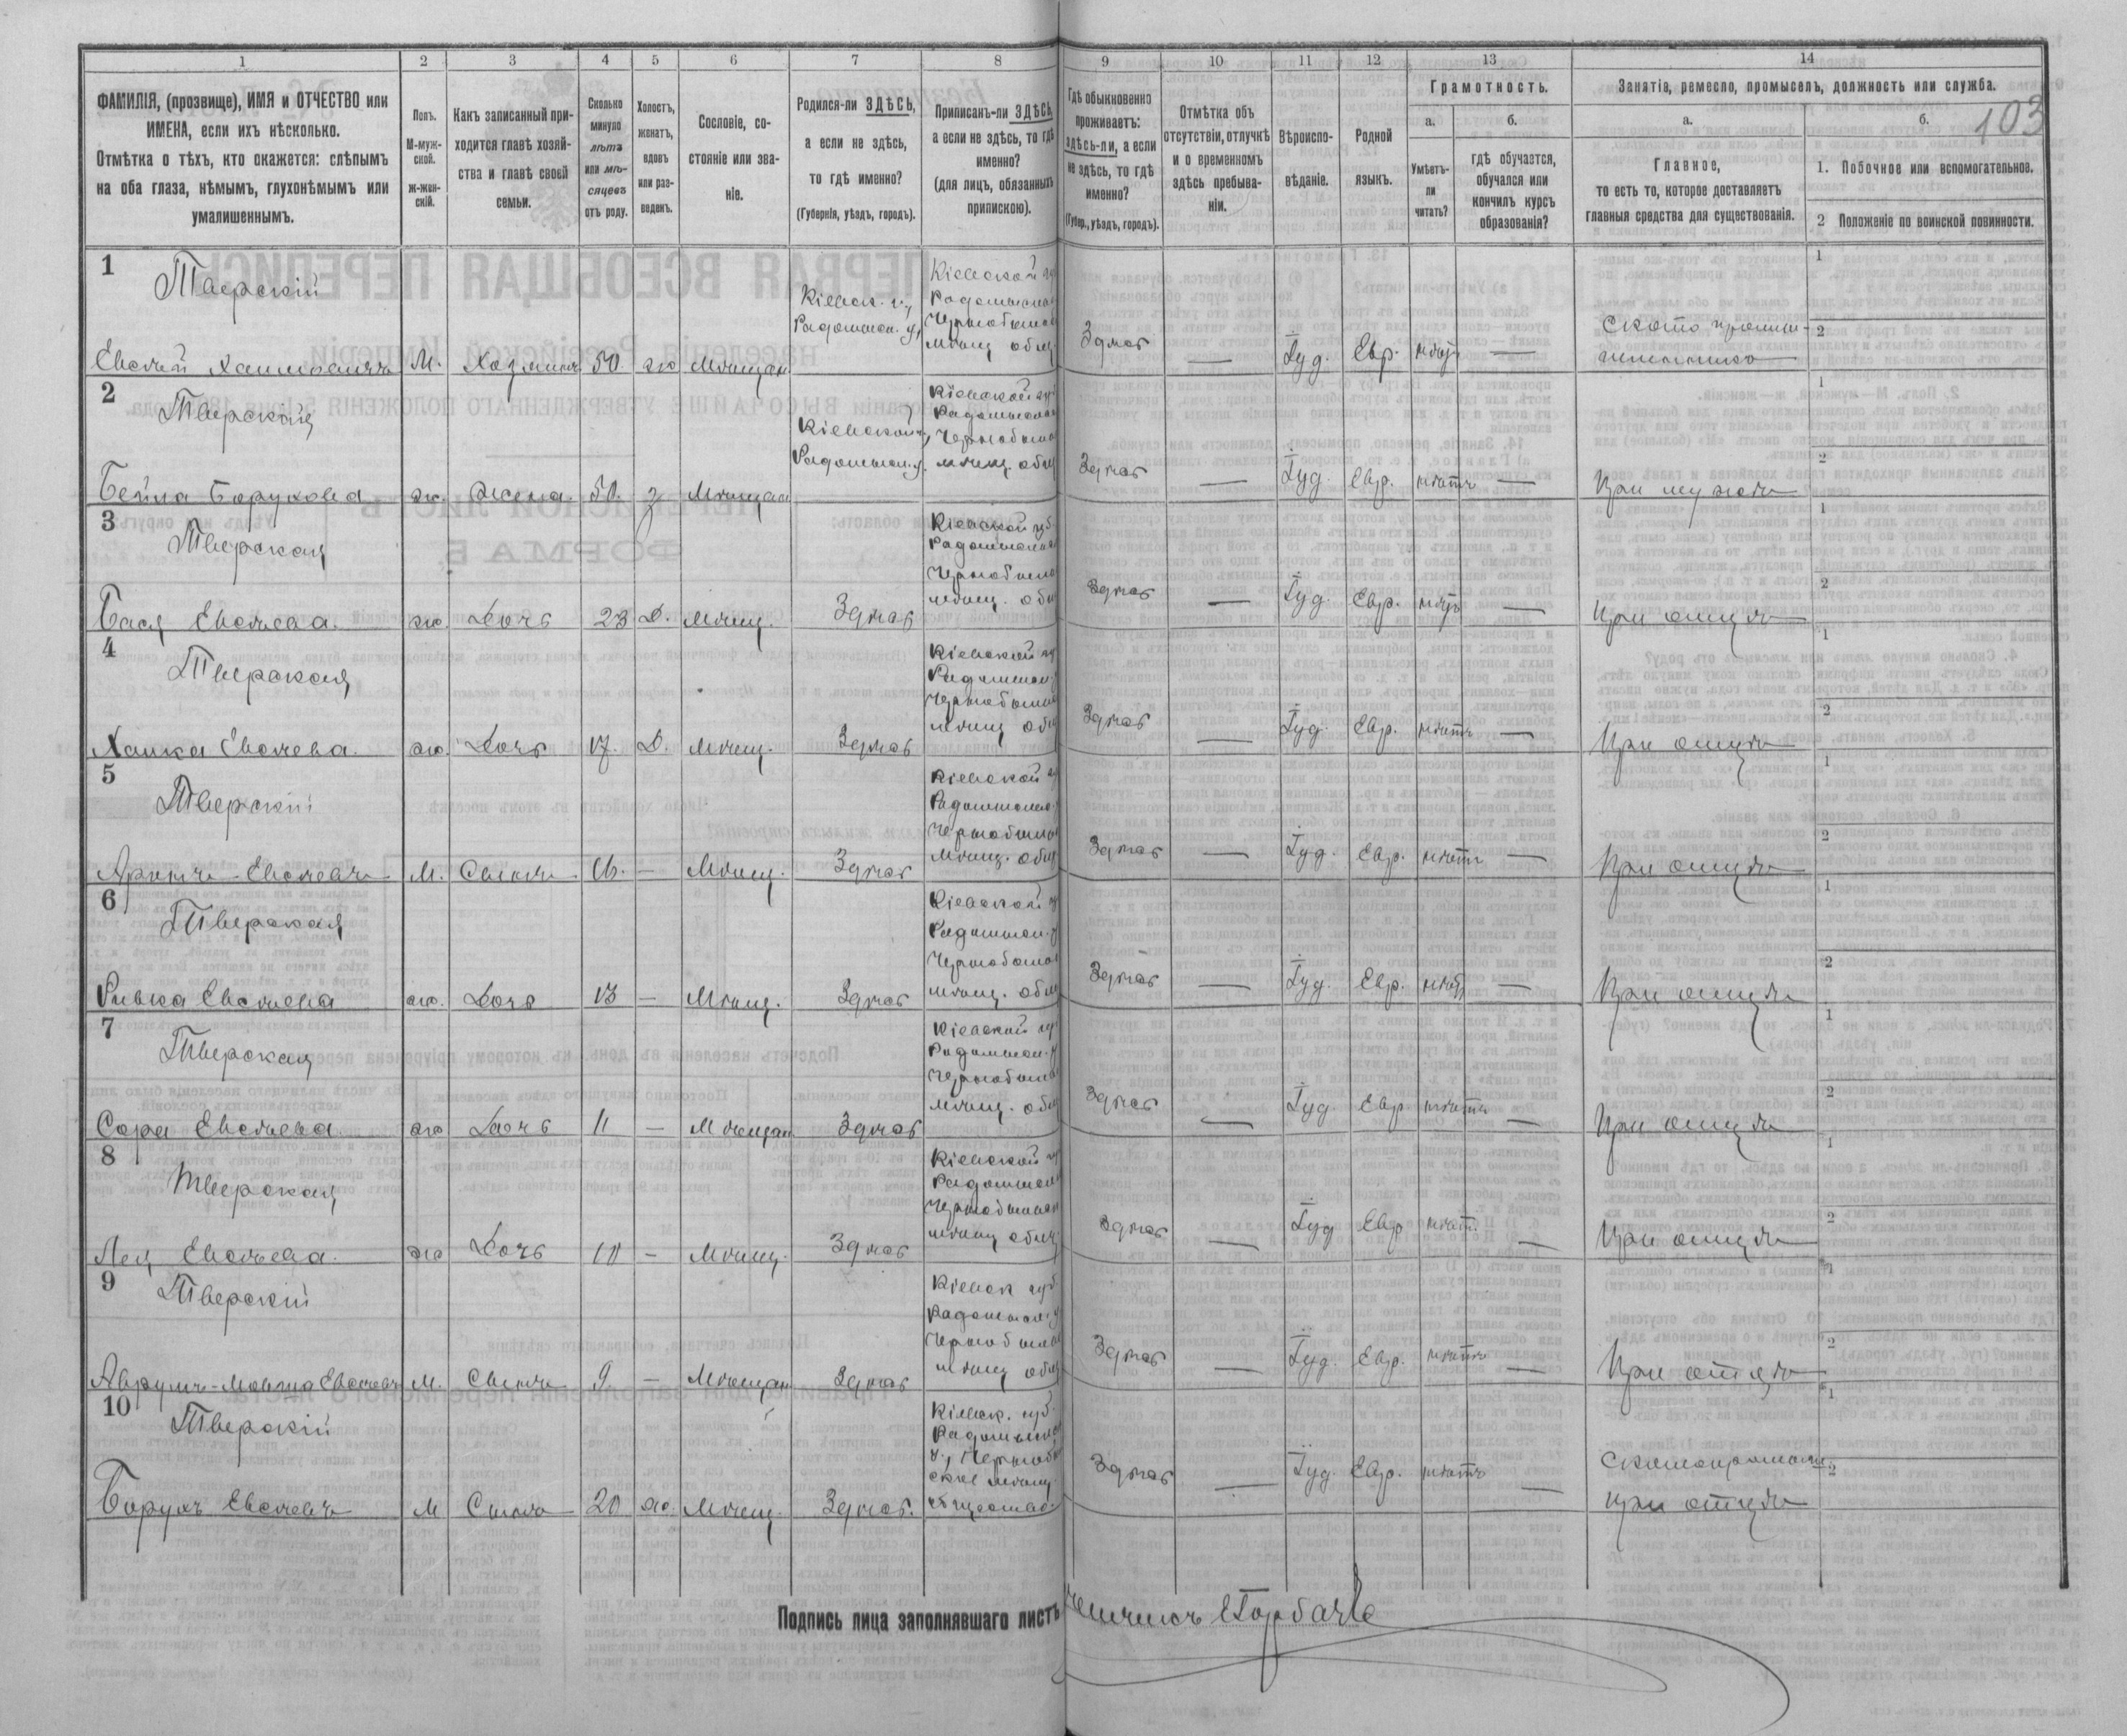 103
1 2 3 4 5 6 7 8 9 10 11 12 13 14
ФАМИЛІЯ, (прозвище), ИМЯ и ОТЧЕСТВО или ИМЕНА, если ихъ нѣсколько.
Отмѣтка о тѣхъ, кто окажется: слѣпымъ на оба глаза, нѣмымъ, глухонѣмымъ или умалишеннымъ.
Полъ.
М-муж-
ской.
ж-жен-
скій.
Какъ записанный при-
ходится главѣ хозяй-
ства и главѣ своей
семьи.
Сколько
минуло
лѣтъ
или мѣ-
сяцевъ
отъ роду.
Холостъ,
женатъ,
вдовъ
или раз-
веденъ.
Сословіе, со-
стояніе или зва-
ніе.
Родился-ли ЗДѢСЬ,
а если не здѣсь,
то гдѣ именно?
(Губернія, уѣздъ, городъ).
Приписанъ-ли ЗДѢСЬ,
а если не здѣсь, то гдѣ
именно?
(для лицъ, обязанныхъ
припискою).
Гдѣ обыкновенно
проживаетъ:
здѣсь-ли, а если
не здѣсь, то гдѣ
именно?
(Губер., уѣздъ, городъ).
Отмѣтка объ
отсутствіи, отлучкѣ
и о временномъ
здѣсь пребыва-
ніи.
Вѣроиспо-
вѣданіе.
Родной
языкъ.
Грамотность.
а.
Умѣетъ-
ли
читать?
б.
гдѣ обучается,
обучался или
кончилъ курсъ
образованія?
Занятіе, ремесло, промыселъ, должность или служба.
а.
Главное,
то есть то, которое доставляетъ
главныя средства для существованія.
б.
1. Побочное или вспомогательное.
2 Положеніе по воинской повинности.
1 Тверскій
Евсей Хаимовичъ М. Хозяинъ 50 ж Мѣщан
Кіевск. г., Радомысл. у.
Кіевской губ Радомысл Чернобыл мѣщ общ
Здѣсь — Іуд. Евр. нѣтъ —
Скотопромышленникъ
1
2
2 Тверская
Бейла Борухова ж. Жена 50. з Мѣщан
Кіевской г., Радомысл. у.
Кіевской губ Радомысл Чернобыл мѣщ. общ
Здѣсь — Іуд. Евр. нѣтъ —
при мужѣ
1
2
3 Тверская
Бася Евсеева. ж. Дочь 23 Д. Мѣщ. Здѣсь
Кіевской губ. Радомысл Чернобыл мѣщ. общ
Здѣсь — Іуд. Евр. нѣтъ —
при отцѣ
1
2
4 Тверская
Хайка Евсеева. ж. Дочь 17. Д. Мѣщ. Здѣсь
Кіевской г Радомысл. Чернобыл мѣщ общ
Здѣсь — Іуд. Евр. нѣтъ —
при отцѣ
1
2
5 Тверскій
Аронъ Евсеевъ М. Сынъ 16. — Мѣщ. Здѣсь
Кіевской г Радомысл. Чернобыл мѣщ. общ
Здѣсь — Іуд. Евр. нѣтъ —
при отцѣ
1
2
6 Тверская
Ривка Евсеева ж. Дочь 13 — Мѣщ. Здѣсь
Кіевской г Радомысл. Чернобыл мѣщ. общ
Здѣсь — Іуд. Евр. нѣтъ —
при отцѣ
1
2
7 Тверская
Сора Евсеева ж Дочь 11 — Мѣщан Здѣсь
Кіевской губ Радомысл. Чернобыл мѣщ. общ
Здѣсь — Іуд. Евр нѣтъ —
при отцѣ
1
2
8 Тверская
Лея Евсеева. ж Дочь 10 — Мѣщ. Здѣсь
Кіевской г Радомысл Чернобыл мѣщ общ
Здѣсь — Іуд Евр нѣтъ —
при отцѣ
1
2
9 Тверскій
Аврумъ-Мошка Евсеевъ М. Сынъ 9 — Мѣщан Здѣсь
Кіевск губ. Радомысл. у Чернобыл мѣщ общ
Здѣсь — Іуд. Евр. нѣтъ —
при отцѣ
1
2
10 Тверскій
Борухъ Евсеевъ М Сынъ 20 ж. Мѣщ. Здѣсь.
Кіевск. губ. Радомысл у., Чернобыльское мѣщ. общество
Здѣсь — Іуд Евр. нѣтъ —
Скотопромышл.
при отцѣ
1
2
Подпись лица заполнявшаго листъ
Горбачъ